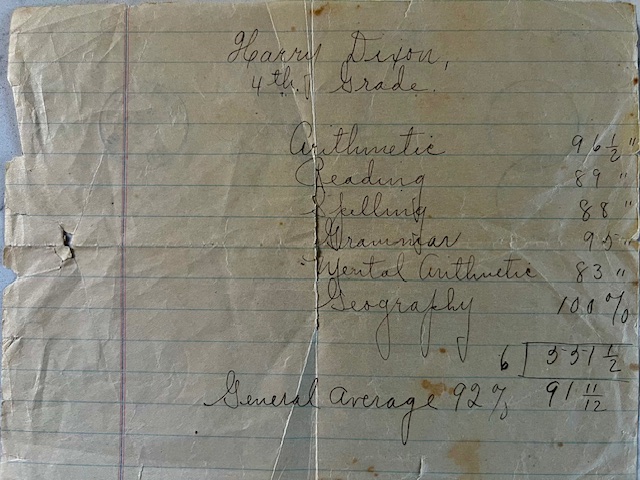 Harry Dixon,
4th. Grade.
Arithmetic 96 1/2 "
Reading 89 "
Spelling 88 "
Grammar 95 "
Mental Arithmetic 83 "
Geography 100 %
6 551 1/2
General Average 92 % 91 11/12